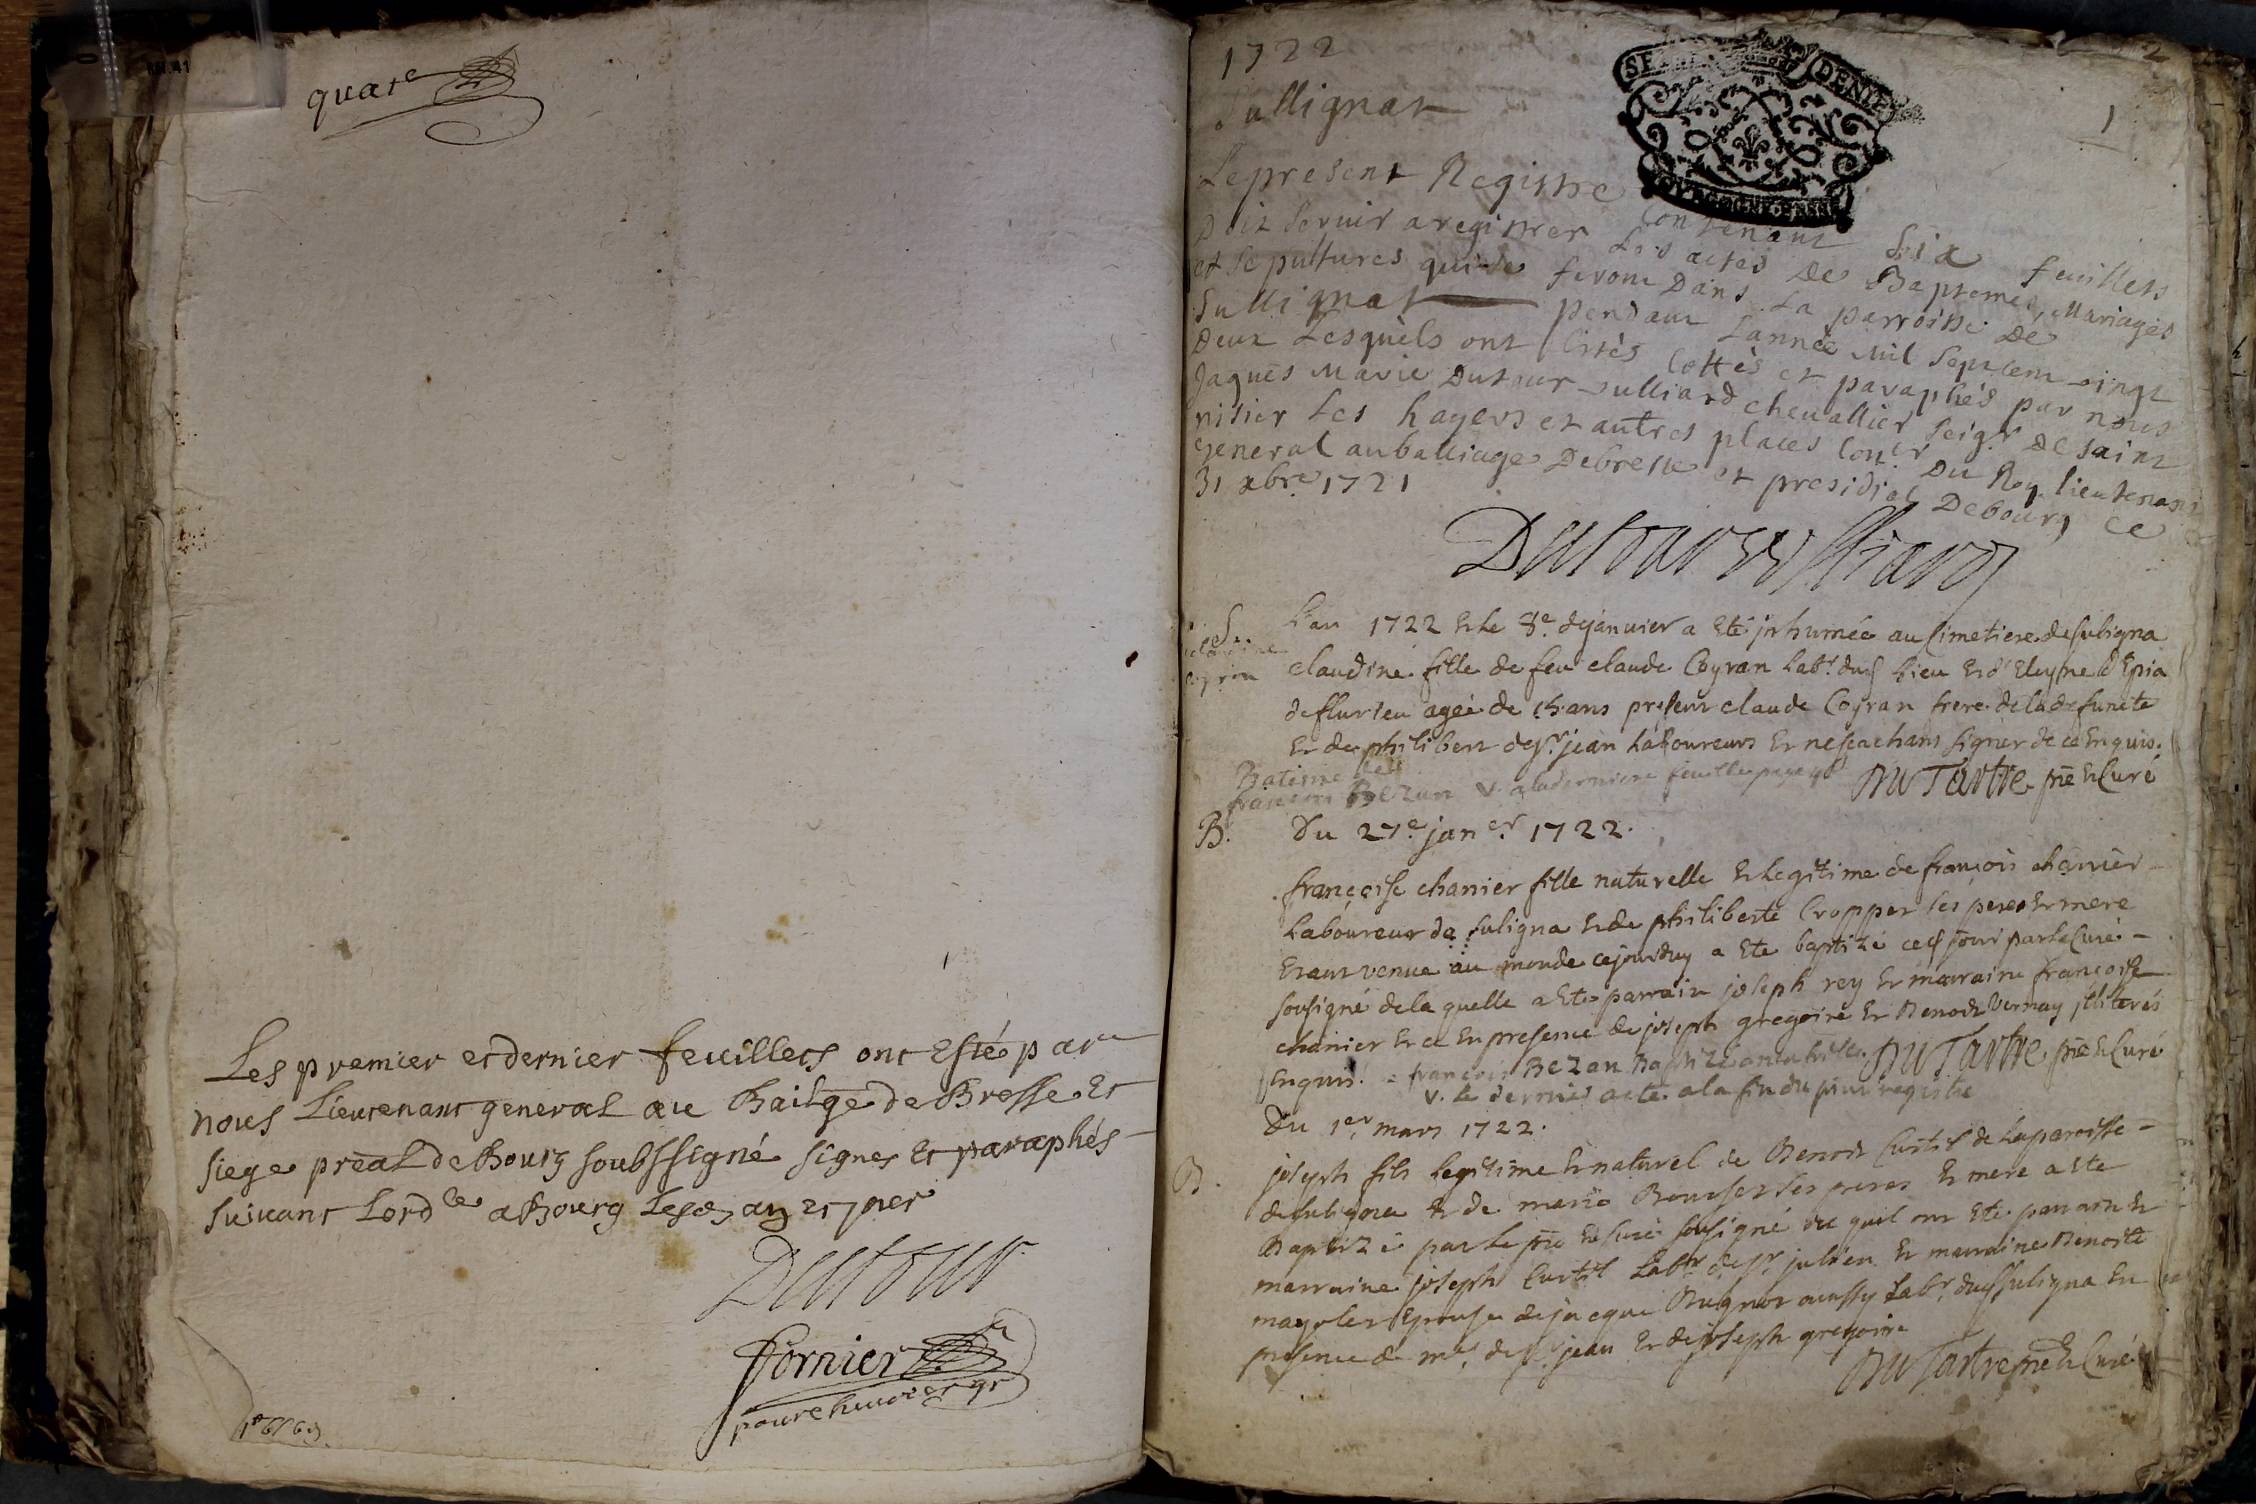 quat.e
Les premier et dernier feuillets ont esté par
nous Lieutenant general au Bailge de Bresse Et
siege preal de Bourg soubssigné signes Et paraphés
suivant Lord.ce a Bourg Les an et
Dutour
fornier
pour
1722
Sullignat
1
2
Le present Registre Contenant six feuillets
Doit servir a registrer Les actes de Baptemes, Mariages
et sepultures qui se feront Dans La parroisse De
Sullignat pendant Lannée Mil Septcent vingt
Deux Lesquels ont Cottès et paraphés par nous
Jaques Marie Dutour Vulliard chevallier seigr De saint
nisier Les hayes et autres places Con.er Du Roy lieutenant
general au balliage De bresse et presidial De bourg ce
31 xbre 1721
Dutour Vulliard
L'an 1722 & Le 8.e de janvier a eté inhumée au Cimetiere de suligna
claudine fille de feu claude Coyran Lab.r dud lieu
de agée de ans present claude Coyran frere de la defuncte
Et de philibert de st. jean Laboureurs Et ne scachans signer de ce Enquis.
Du Tartre ptre & Curé
Batisme de
françois Bezan V. a la derniere feuille page
B. Du 27.e jan.er 1722.
françoise chanier fille naturelle & Legitime de françois chanier
Laboureur de suligna & de philiberte Cropper ses peres Et mere
Etant venue au monde cejourduy a Ete baptizé ced jour par Le Curé
sousigné de la quelle a Ete parrain joseph rey Et marraine françoise
chanier Et ce En presence de joseph gregoire Et Benoit Vernay illiterés
Enquis. françois Bezan Baptizé Du Tartre ptre & Curé
V. Le dernier acte a la fin du registre
Du 1.er mars 1722.
B. joseph fils Legitime & naturel de Benoit Curtil de La paroisse
de suligna & de marie ses peres Et mere a ete
Baptizé par Le ptre & Curé sousigné du quel ont Ete parrain &
marraine joseph Curtil Lab.r de st. julien Et marraine Benoite
Epouse de jacque Lab.r dud suligna En
presence de de st. jean Et de joseph gregoire
Du Tartre ptre & Curé